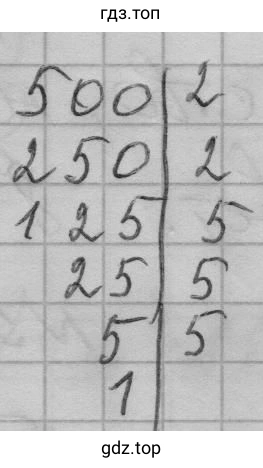 гдз.топ
500 | 2
250 | 2
125 | 5
25 | 5
5 | 5
1 |
gdz.top